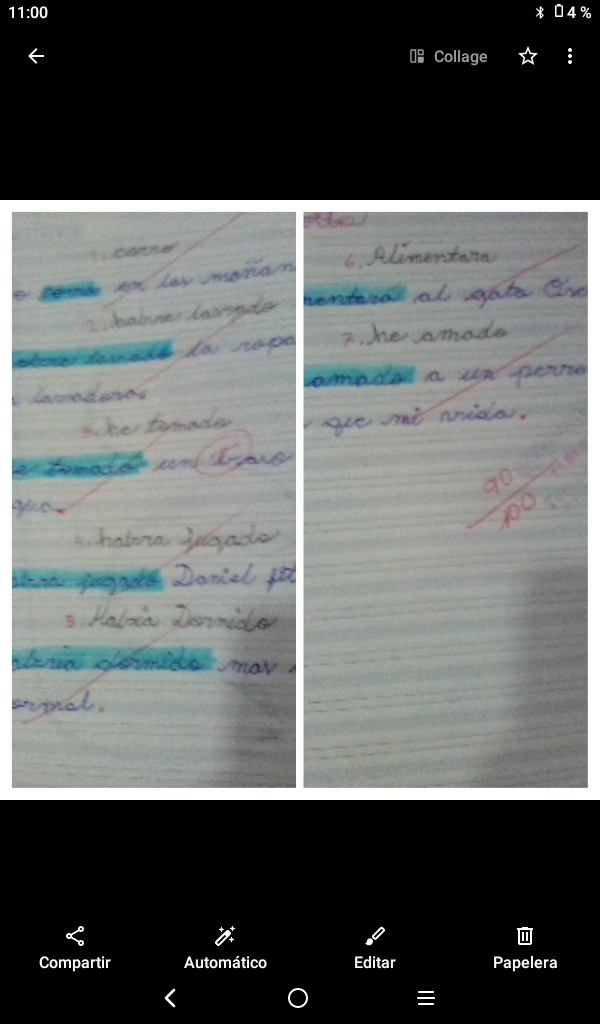 11:00
4 %
Collage
1. corro
corro en las mañan
2. habre lavado
habre lavado la ropa
lavadora.
3. he tomado
e tomado un
gua.
4. habra jugado
abra jugado Daniel
5. Habria Dormido
abria dormido mas
ormal.
6. Alimentara
mentara al gato
7. he amado
amado a un perro
que mi vida.
90
Compartir
Automático
Editar
Papelera